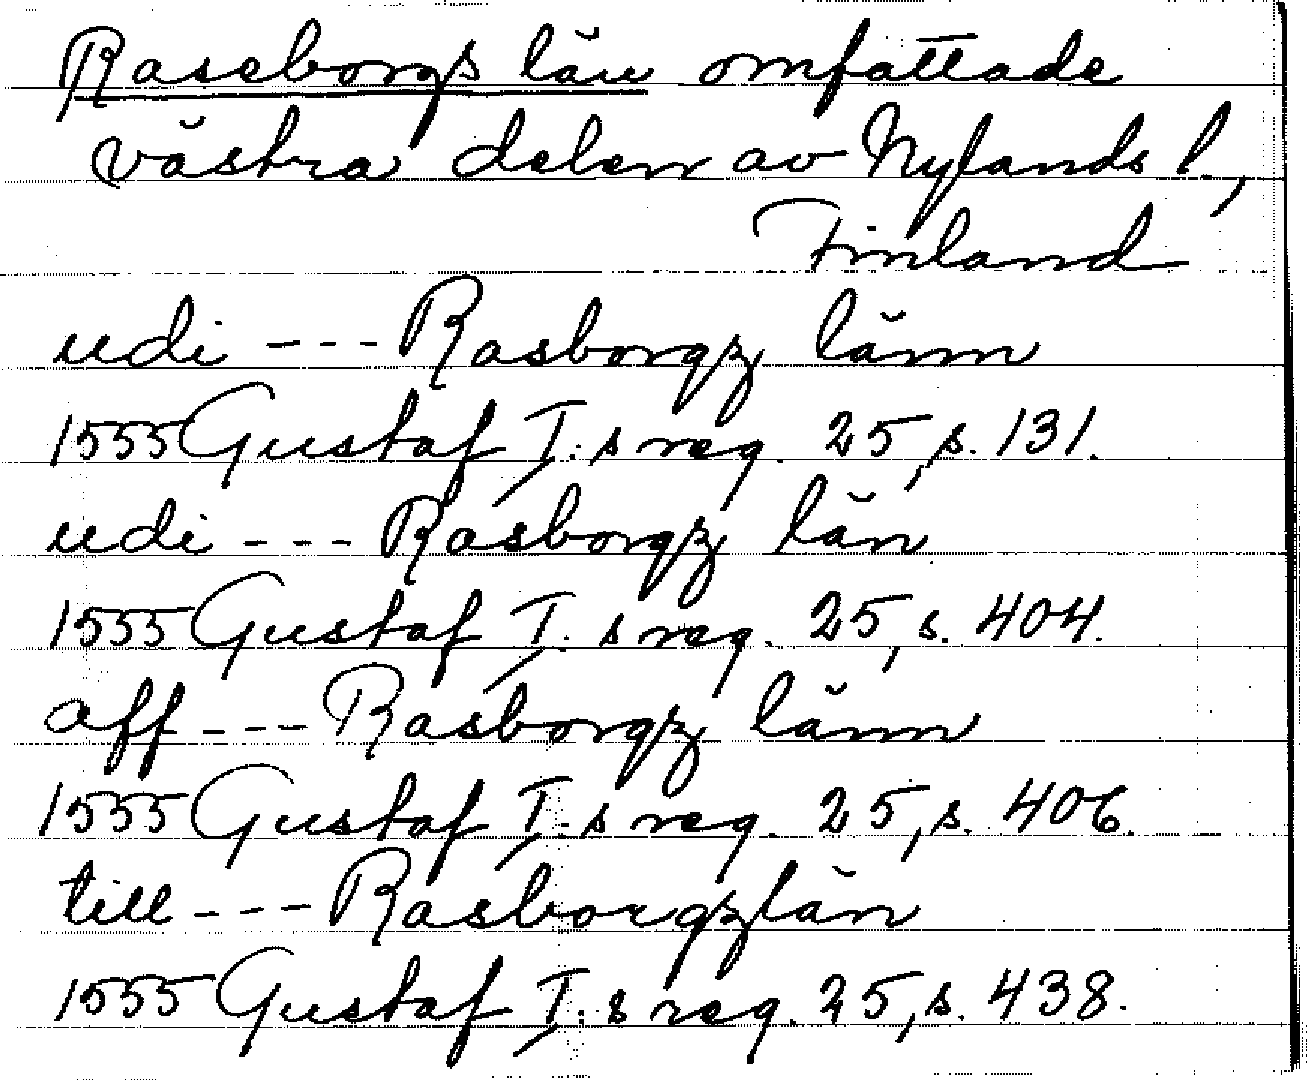 Raseborgs län omfattade
västra delen av Nylands l.,
Finland
udi --- Rasborgz länn
1555 Gustaf I:s reg. 25, s. 131.
udi --- Rasborgz län
1555 Gustaf I:s reg. 25, s. 404.
aff --- Rasborgz länn
1555 Gustaf I:s reg. 25, s. 406.
till --- Rasborgzlän
1555 Gustaf I:s reg. 25, s. 438.